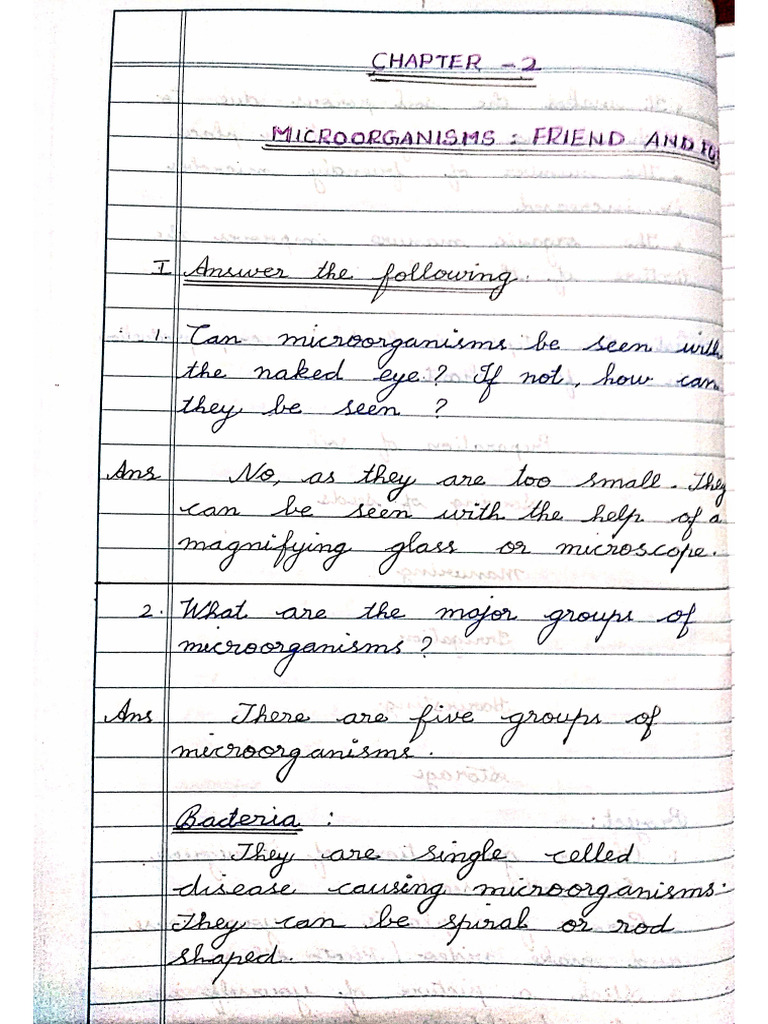 CHAPTER - 2
MICROORGANISMS : FRIEND AND FO
I Answer the following.
1. Can microorganisms be seen with
the naked eye? If not, how can
they be seen ?
Ans No, as they are too small. They
can be seen with the help of a
magnifying glass or microscope.
2. What are the major groups of
microorganisms?
Ans There are five groups of
microorganisms.
Bacteria :
They are single celled
disease causing microorganisms.
They can be spiral or rod
shaped.